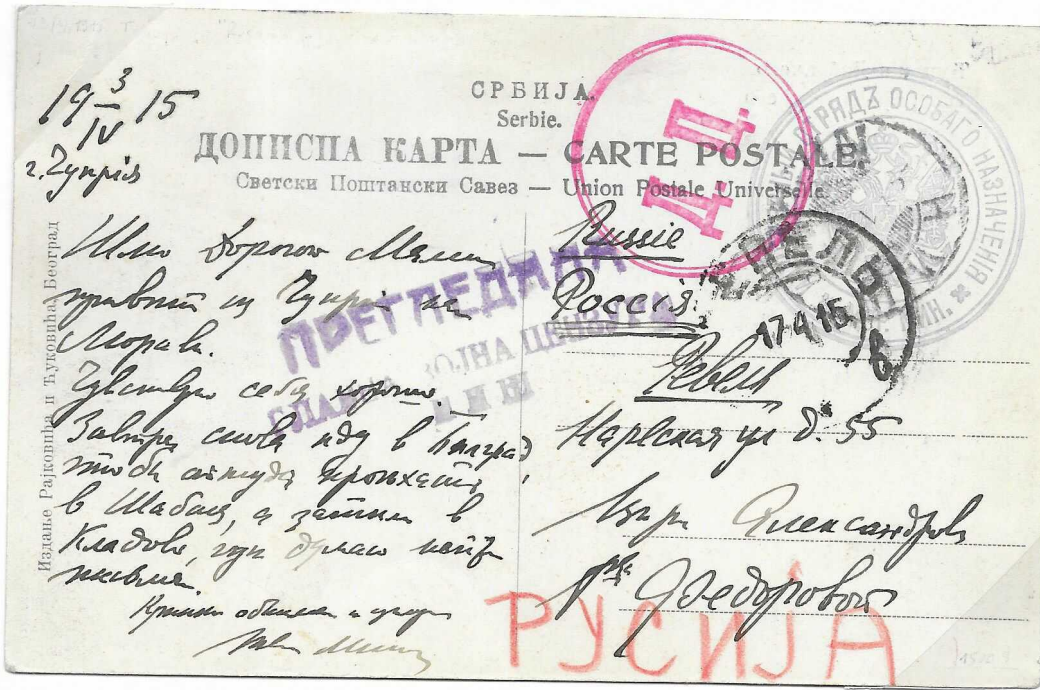 СРБИЈА.
Serbie.
ДОПИСНА КАРТА — CARTE POSTALE.
Светски Поштански Савез — Union Postale Universelle
Издање Рајковића и Ђуковића, Београд
19 3/IV 15
г. Чуприя
Шлю дорогой
привет из Чуприи на
Мораве.
Чувствую себя хорошо.
Завтра снова иду в Белград,
чтоб оттуда проехать
в Шабац, а затем в
Кладово, где думаю найти
письма.
Крепко обнимаю и
Д.Д.
ПРЕГЛЕДАНА
ВОЈНА ЦЕНЗУРА
НИШ
ОТРЯДЪ ОСОБАГО НАЗНАЧЕНІЯ
РЕВЕЛЬ
17 4 15
Russie
Россія
Ревель
Нарвская ул д. 55
Александровне
Федоровой
РУСИЈА